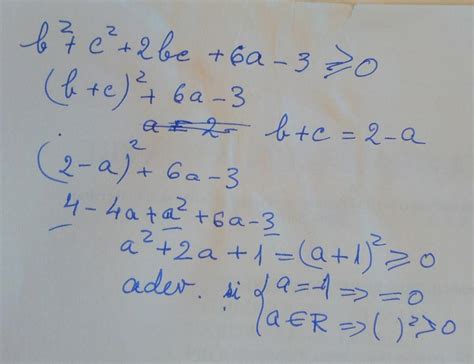 b² + c² + 2bc + 6a - 3 ≥ 0
(b + c)² + 6a - 3
a = 2 b + c = 2 - a
(2 - a)² + 6a - 3
4 - 4a + a² + 6a - 3
a² + 2a + 1 = (a + 1)² ≥ 0
adev. și { a = -1 => = 0
a ∈ R => ( )² ≥ 0